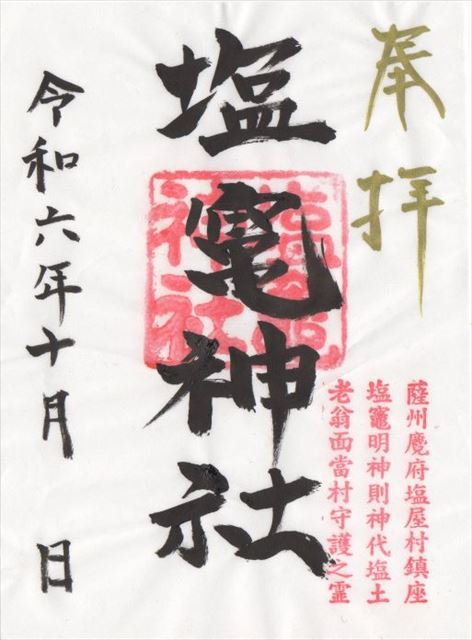 奉拝
薩州麑府塩屋村鎮座
塩竈明神則神代塩土
老翁面當村守護之霊
塩竈神社
令和六年十月 日